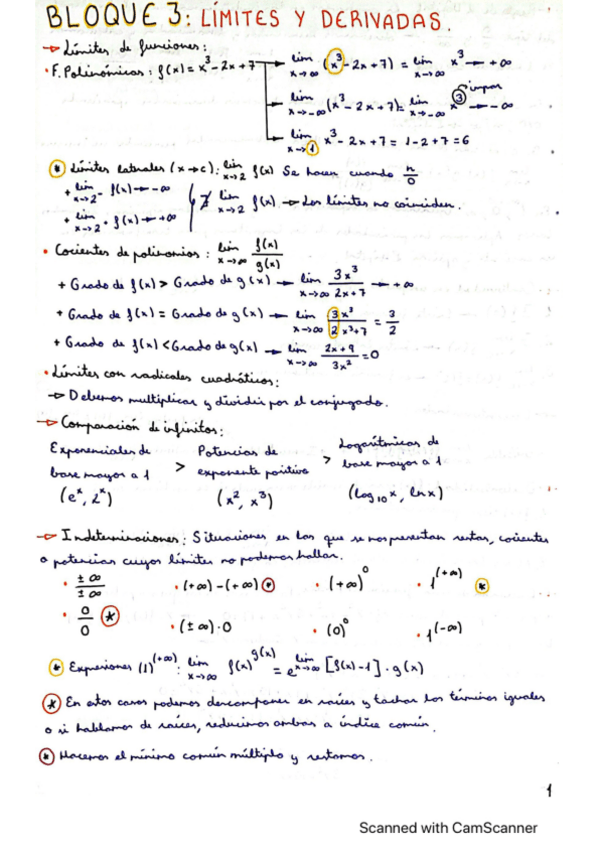 BLOQUE 3: LÍMITES Y DERIVADAS.
→ Límites de funciones:
• F. Polinómicas: f(x) = x³ - 2x + 7 → lim x→∞ (x³ - 2x + 7) = lim x→∞ x³ → +∞
lim x→-∞ (x³ - 2x + 7) = lim x→-∞ x³ → -∞ impar
lim x→1 x³ - 2x + 7 = 1 - 2 + 7 = 6
* Límites laterales (x→c): lim x→2 f(x) Se hacen cuando n/0
+ lim x→2⁻ f(x) → -∞
+ lim x→2⁺ f(x) → +∞
∄ lim x→2 f(x) → Los límites no coinciden.
• Cocientes de polinomios: lim x→∞ f(x)/g(x)
+ Grado de f(x) > Grado de g(x) → lim x→∞ 3x³/2x+7 → +∞
+ Grado de f(x) = Grado de g(x) → lim x→∞ 3x³/2x³+7 = 3/2
+ Grado de f(x) < Grado de g(x) → lim x→∞ 2x+9/3x² = 0
• Límites con radicales cuadráticos:
→ Debemos multiplicar y dividir por el conjugado.
→ Comparación de infinitos:
Exponenciales de base mayor a 1 > Potencias de exponente positivo > Logarítmicas de base mayor a 1
(eˣ, 2ˣ) (x², x³) (log₁₀ x, ln x)
→ Indeterminaciones: Situaciones en las que se nos presentan restas, cocientes
o potencias cuyos límites no podemos hallar.
• ±∞/±∞ • (+∞) - (+∞) * • (+∞)⁰ • 1^(+∞) *
• 0/0 * • (±∞) · 0 • (0)⁰ • 1^(-∞)
* Expresiones (1)^(+∞): lim x→∞ f(x)^g(x) = e^lim x→∞ [f(x) - 1] · g(x)
* En estos casos podemos descomponer en raíces y tachar los términos iguales
o si hablamos de raíces, reducimos ambas a índice común.
* Hacemos el mínimo común múltiplo y restamos.
1
Scanned with CamScanner